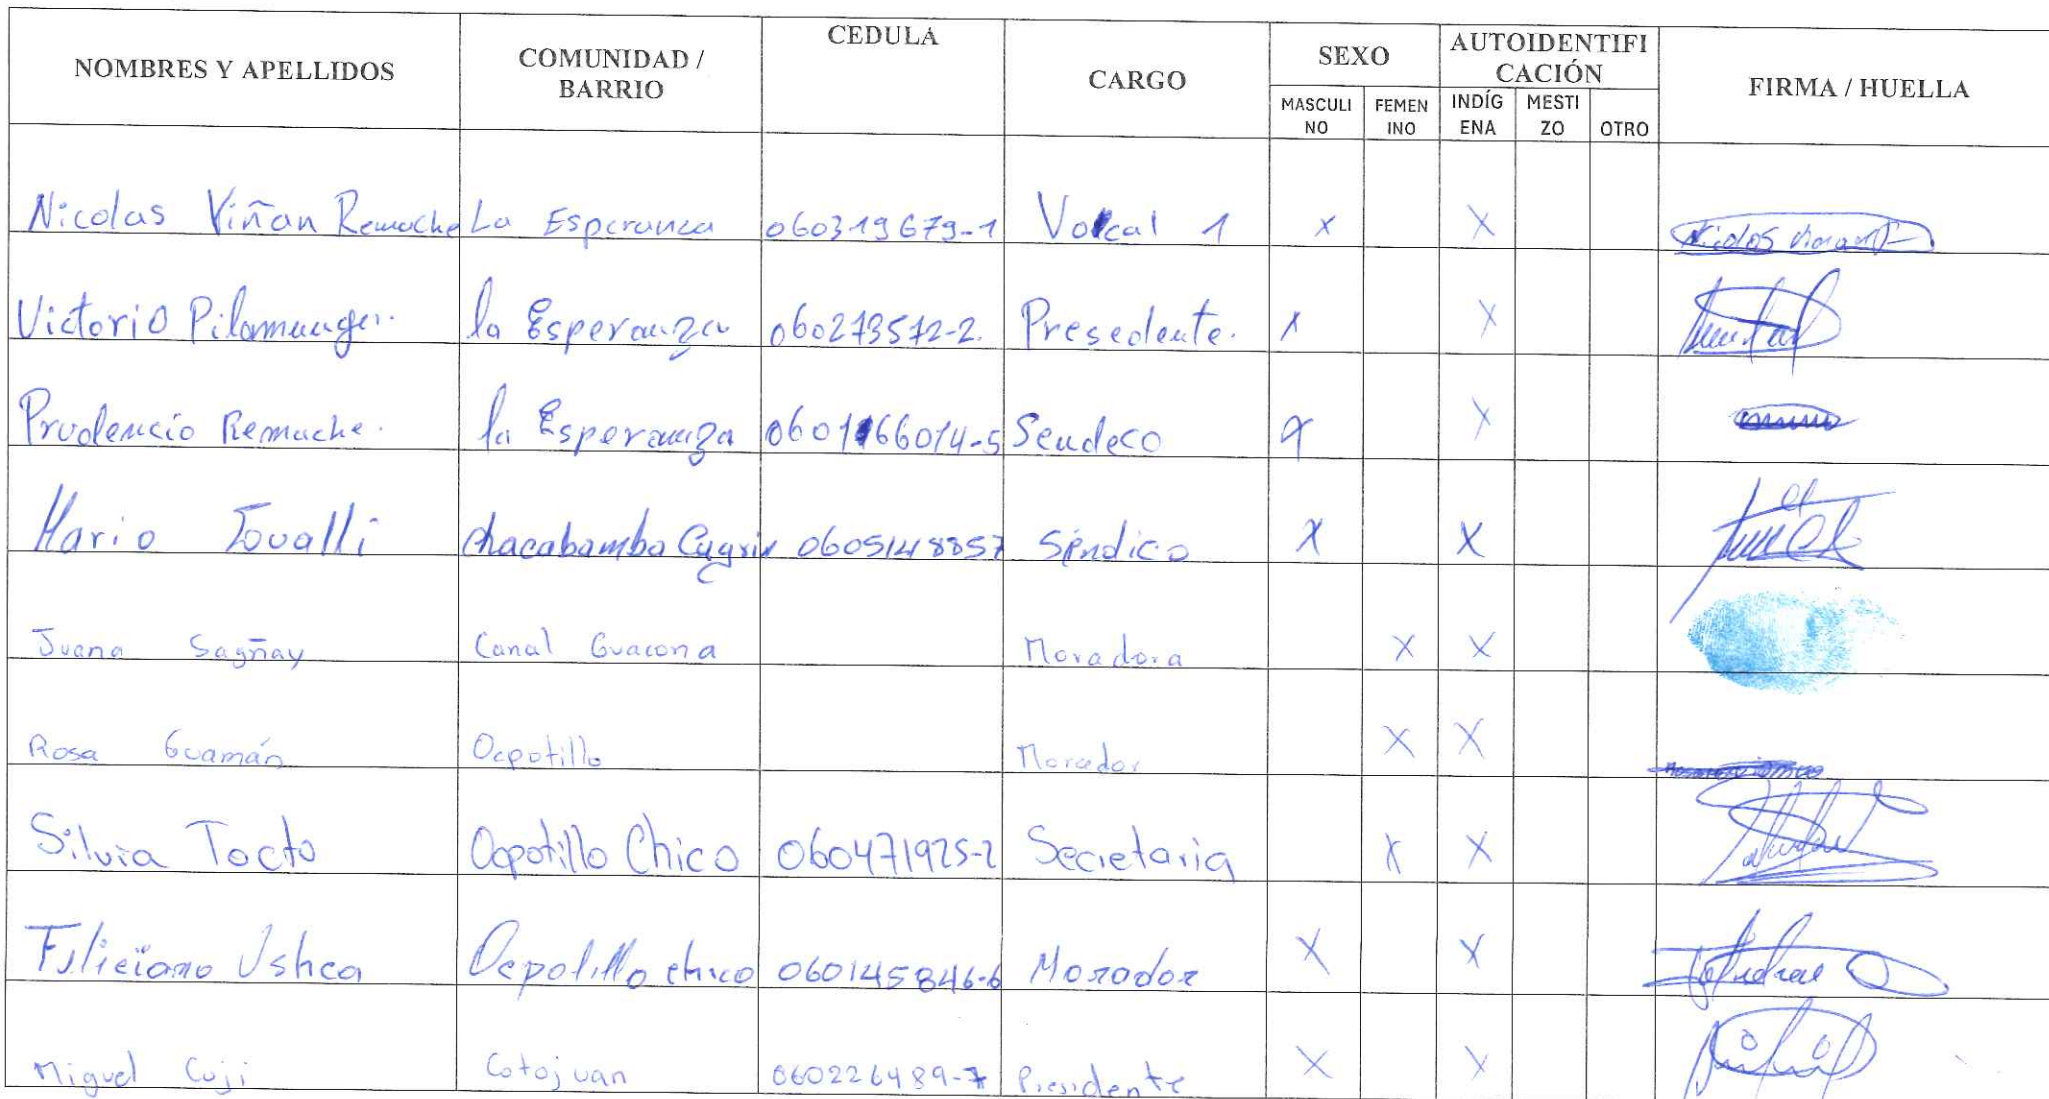 NOMBRES Y APELLIDOS COMUNIDAD / BARRIO CEDULA CARGO SEXO AUTOIDENTIFICACIÓN FIRMA / HUELLA
MASCULINO FEMENINO INDÍGENA MESTIZO OTRO
Nicolas Viñan Remache La Esperanza 060319679-1 Vocal 1 x X
Victorio la Esperanza 060273572-2. Presedente. x X
Prudencio Remache. la Esperanza 060166014-5 Sendeco x X
Mario Tovalli Chacabamba 0605148857 Síndico X X
Juana Sagñay Canal Guacona Moradora X X
Rosa Guamán Ocpotillo Morador X X
Silvia Tocto Ocpotillo Chico 060471925-2 Secretaria X X
Filiciano Ushca Ocpotillo chico 060145846-6 Morador X X
Miguel Cuji Cotojuan 060226489-7 Presidente X X